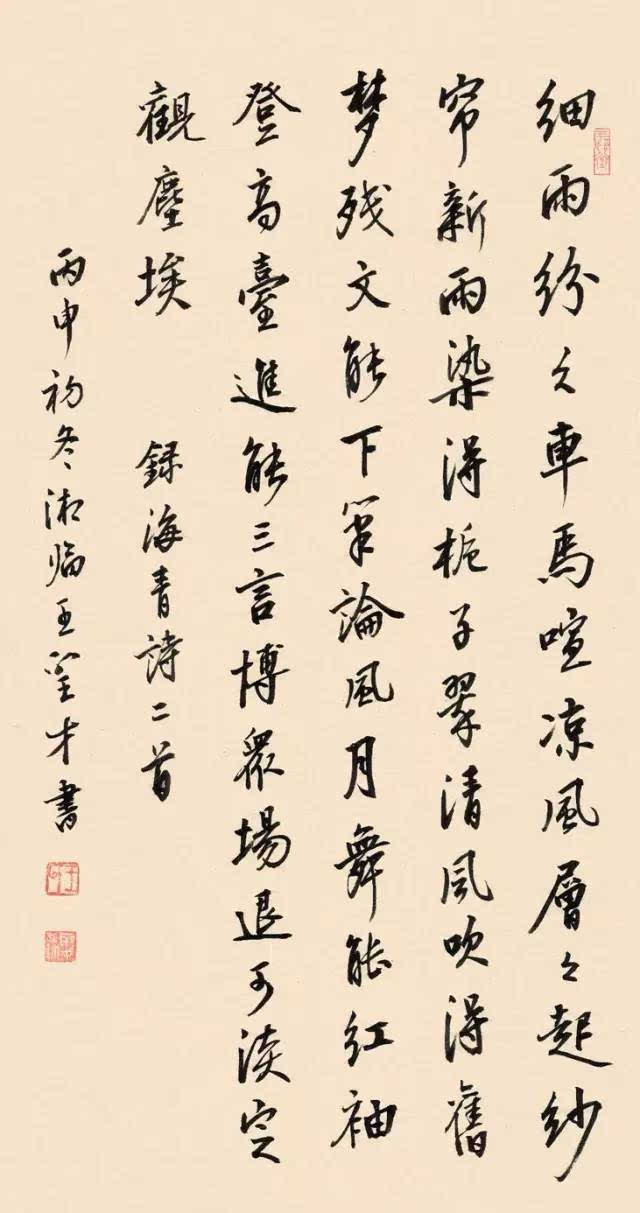 細雨紛々車馬喧凉風層々起紗
帘新雨染得栀子翠清風吹得舊
梦残文能下筆論風月舞能紅袖
登高臺進能三言博眾場退可淡定
觀塵埃
錄海青詩二首
丙申初冬湘临王星才書